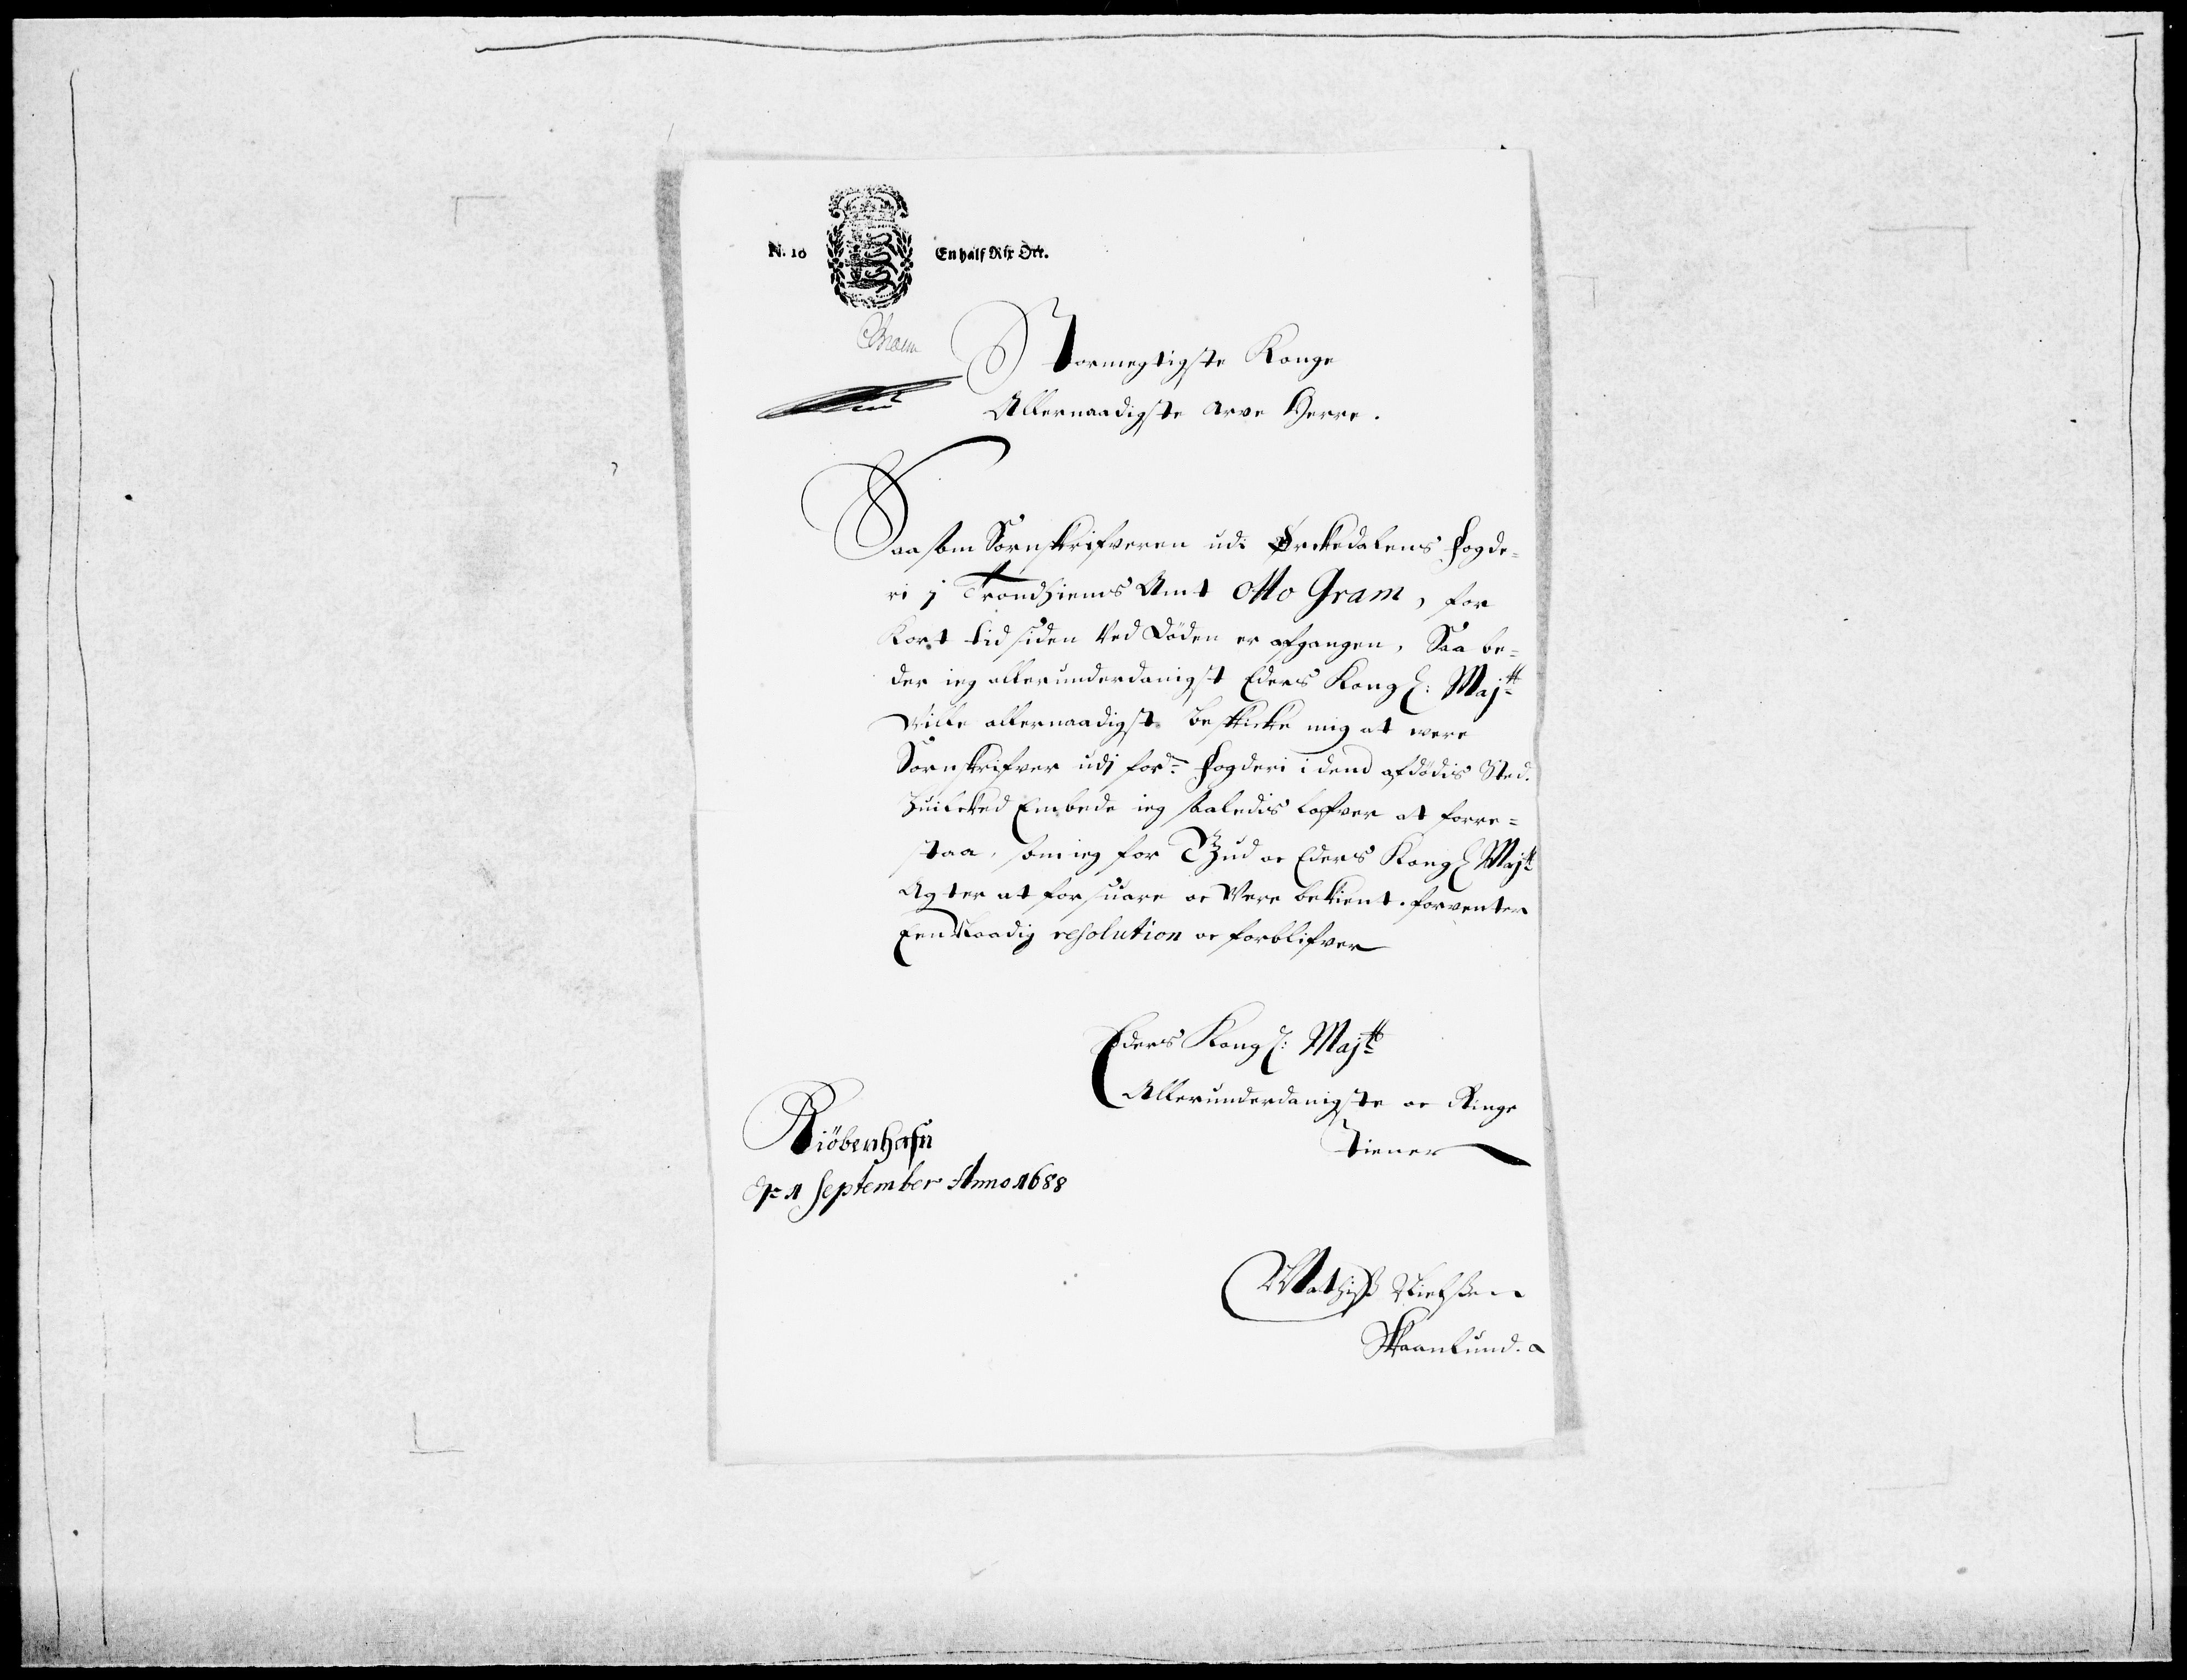 N. 10 En half Rix Ort.
Stormegtigste Konge
Allernaadigste Arve Herre.
Saasom Sornskrifveren udi Ørckedalens fogde-
ri j Trondhiems Amt Otto Gram, for
Kort tid siden Ved Döden er afgangen, Saa be-
der ieg allerunderdanigst Eders Kongl: Majtt
Wille allernaadigst beskicke mig at were
Sornskrifver udj fordne fogderi i dend afdödis Sted.
Huilcked Embede ieg saaledis lofver at forre-
staa, som ieg for Gud oc Eders Kongl Majtt
Agter at forsuare oc Were bekient. forventer
Een Naadig resolution oc forblifver
Eders Kongl: Majtt
Allerunderdanigste oc Ringe
Tiener
Kiöbenhafn
September Anno 1688
Mathiß Nielßen
Skaanlund.